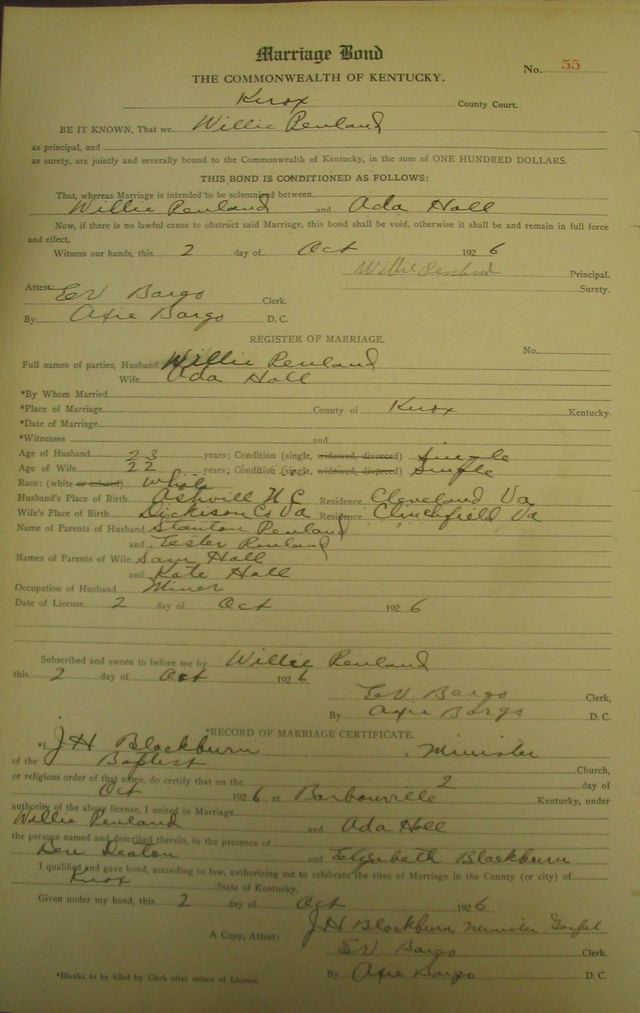 Marriage Bond
No. 55
THE COMMONWEALTH OF KENTUCKY.
Knox County Court.
BE IT KNOWN, That we Willie Penland
as principal, and
as surety, are jointly and severally bound to the Commonwealth of Kentucky, in the sum of ONE HUNDRED DOLLARS.
THIS BOND IS CONDITIONED AS FOLLOWS:
That, whereas Marriage is intended to be solemnized between
Willie Penland and Ada Hall
Now, if there is no lawful cause to obstruct said Marriage, this bond shall be void, otherwise it shall be and remain in full force
and effect.
Witness our hands, this 2 day of Oct 1926
Willie Penland Principal.
Surety.
Attest: EV Bargo Clerk.
By Axie Bargo D. C.
REGISTER OF MARRIAGE.
No.
Full names of parties, Husband Willie Penland
Wife Ada Hall
*By Whom Married
*Place of Marriage County of Knox Kentucky.
*Date of Marriage
*Witnesses and
Age of Husband 23 years; Condition (single, widowed, divorced) Single
Age of Wife 22 years; Condition (single, widowed, divorced) Single
Race: (white or colored) White
Husband's Place of Birth Ashvill N C Residence Cleveland Va
Wife's Place of Birth Dickison Co Va Residence Clinchfield Va
Name of Parents of Husband Stanton Penland
and Lester Penland
Names of Parents of Wife Sam Hall
and Kate Hall
Occupation of Husband Miner
Date of License 2 day of Oct 1926
Subscribed and sworn to before me by Willie Penland
this 2 day of Oct 1926
EV Bargo Clerk,
By Axie Bargo D. C.
*RECORD OF MARRIAGE CERTIFICATE.
*I, J H Blackburn, Minister
of the Baptist Church,
or religious order of that name, do certify that on the 2 day of
Oct 1926, at Barbourville Kentucky, under
authority of the above license, I united in Marriage
Willie Penland and Ada Hall
the persons named and described therein, in the presence of
Deaton and Elizabeth Blackburn
I qualified and gave bond, according to law, authorizing me to celebrate the rites of Marriage in the County (or city) of
Knox State of Kentucky.
Given under my hand, this 2 day of Oct 1926.
J H Blackburn Minister Gospel
A Copy, Attest: EV Bargo Clerk.
*Blanks to be filled by Clerk after return of License. By Axie Bargo D. C.